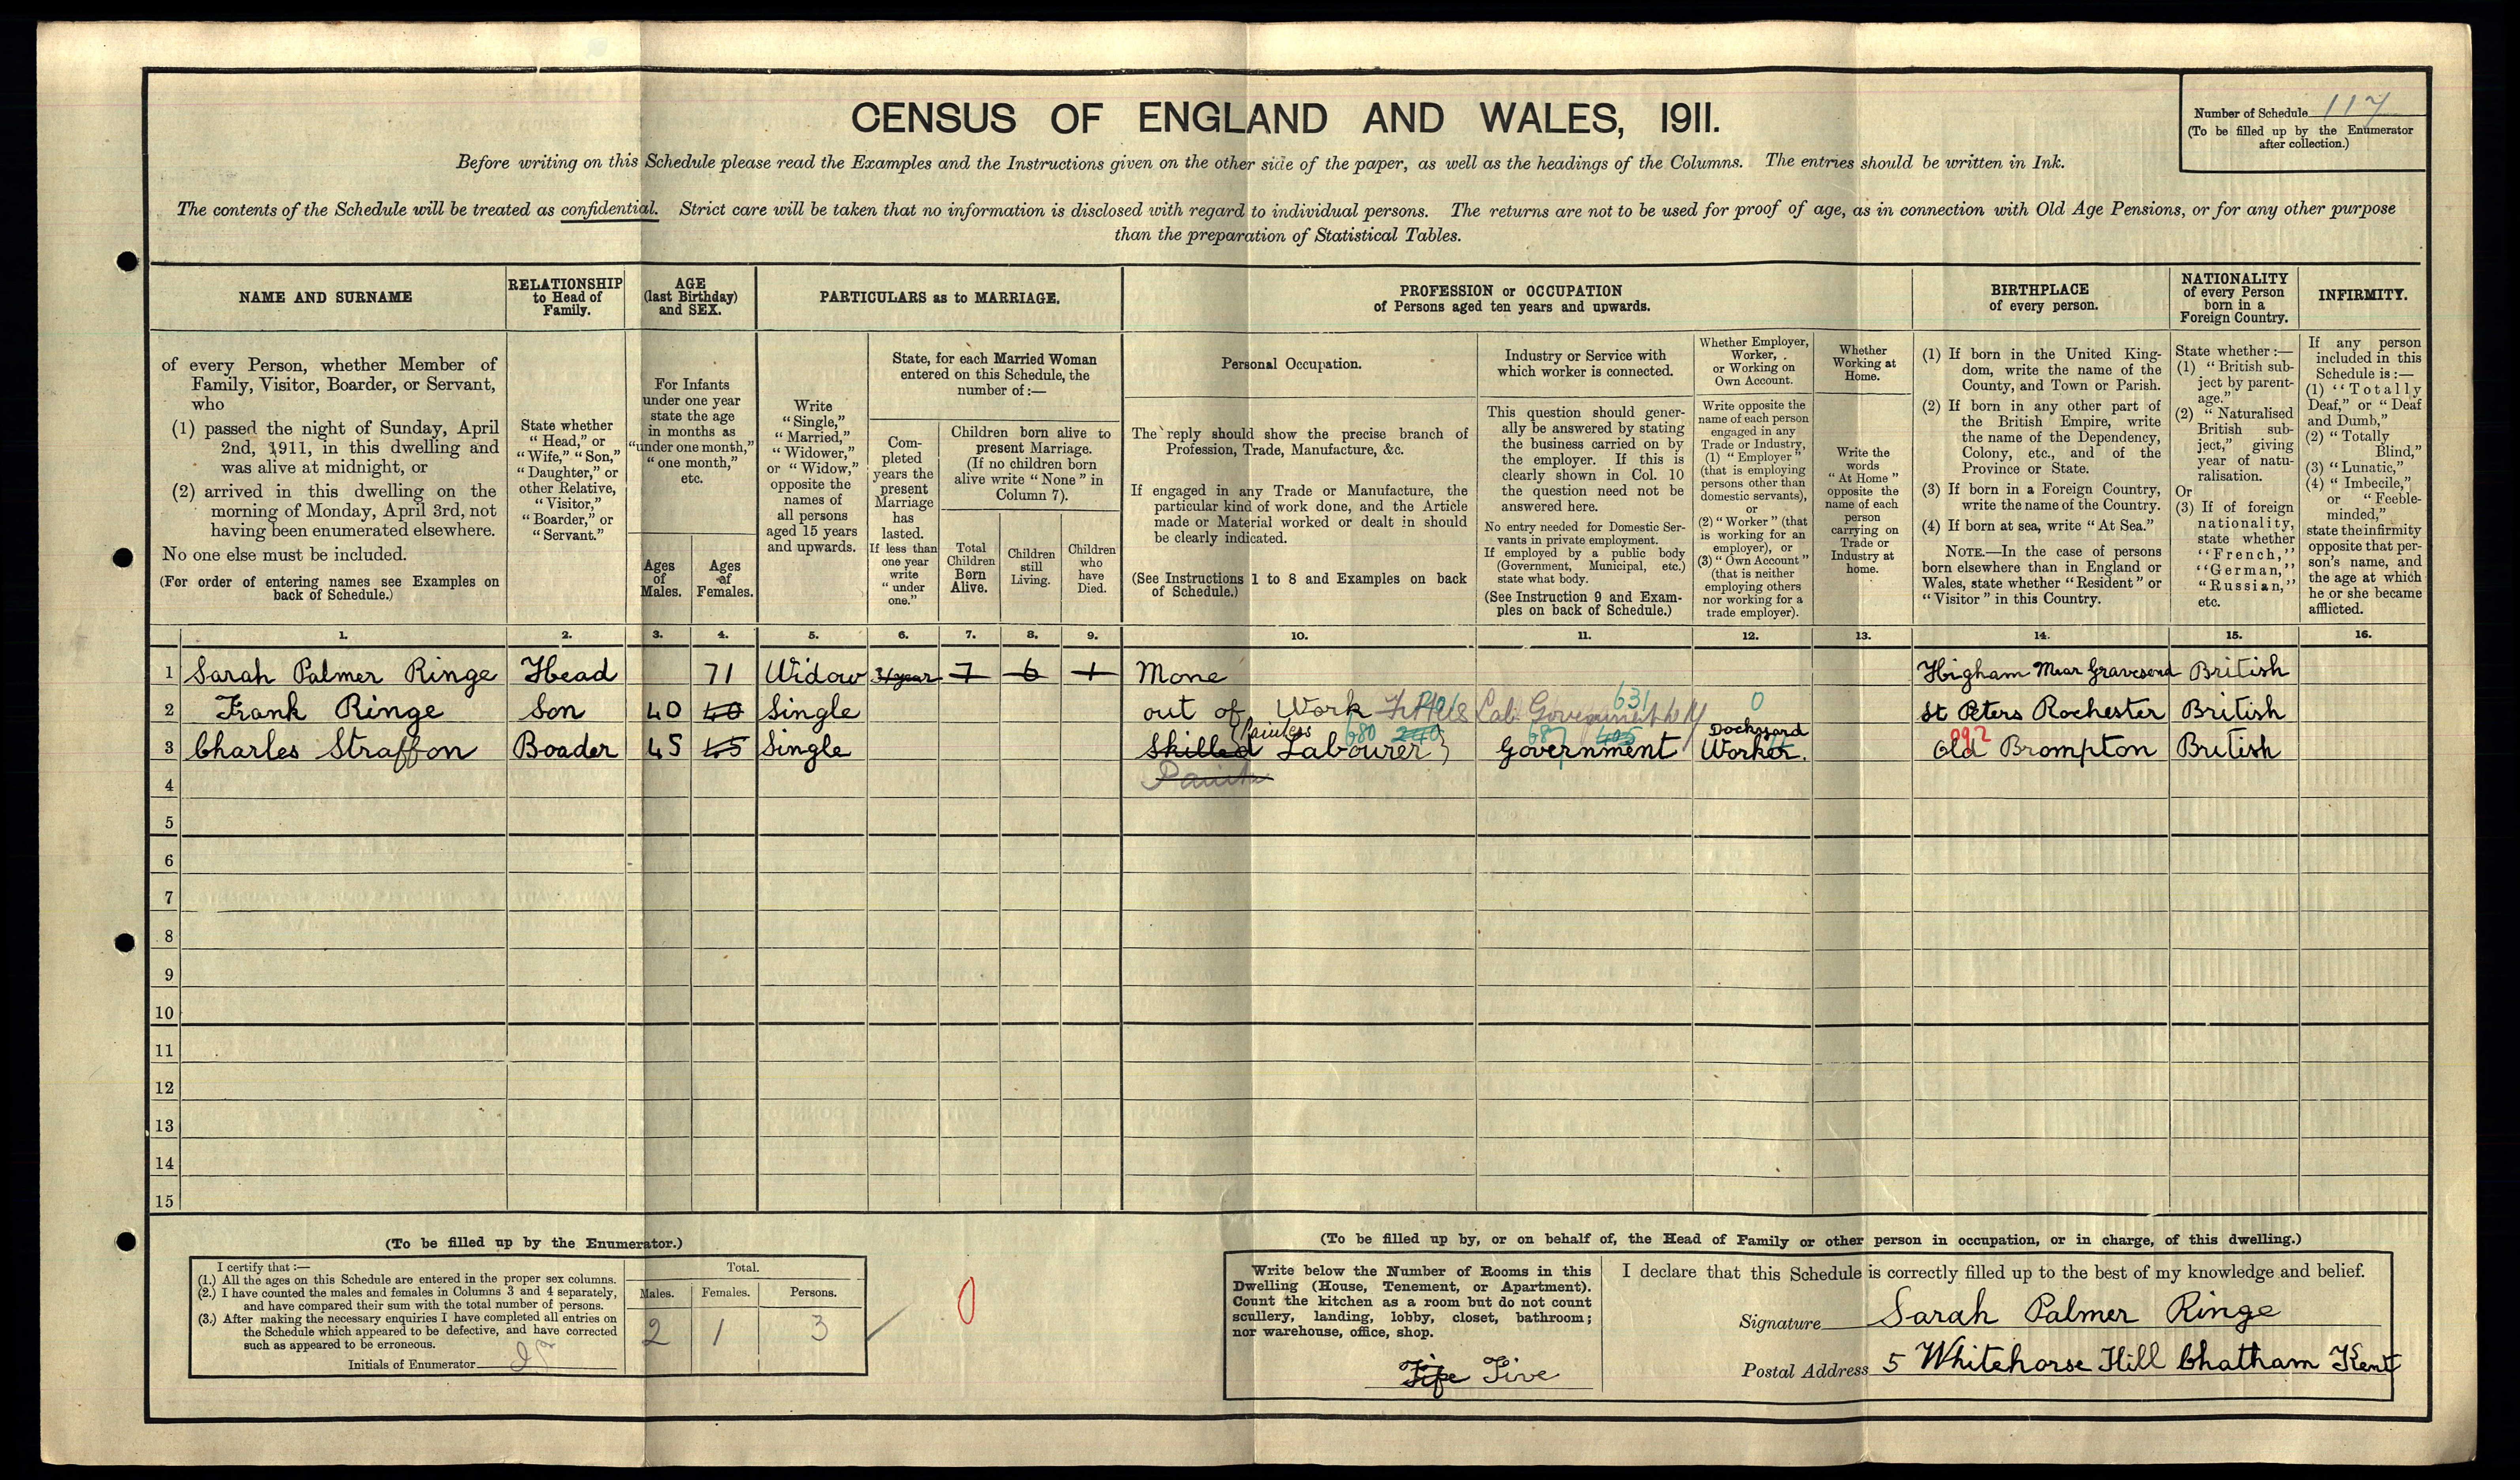 CENSUS OF ENGLAND AND WALES, 1911.
Number of Schedule 117
(To be filled up by the Enumerator
after collection.)
Before writing on this Schedule please read the Examples and the Instructions given on the other side of the paper, as well as the headings of the Columns. The entries should be written in Ink.
The contents of the Schedule will be treated as confidential. Strict care will be taken that no information is disclosed with regard to individual persons. The returns are not to be used for proof of age, as in connection with Old Age Pensions, or for any other purpose
than the preparation of Statistical Tables.
NAME AND SURNAME
of every Person, whether Member of
Family, Visitor, Boarder, or Servant,
who
(1) passed the night of Sunday, April
2nd, 1911, in this dwelling and
was alive at midnight, or
(2) arrived in this dwelling on the
morning of Monday, April 3rd, not
having been enumerated elsewhere.
No one else must be included.
(For order of entering names see Examples on
back of Schedule.)
RELATIONSHIP
to Head of
Family.
State whether
"Head," or
"Wife," "Son,"
"Daughter," or
other Relative,
"Visitor,"
"Boarder," or
"Servant."
AGE
(last Birthday)
and SEX.
For Infants
under one year
state the age
in months as
"under one month,"
"one month,"
etc.
Ages
of
Males.
Ages
of
Females.
PARTICULARS as to MARRIAGE.
Write
"Single,"
"Married,"
"Widower,"
or "Widow,"
opposite the
names of
all persons
aged 15 years
and upwards.
State, for each Married Woman
entered on this Schedule, the
number of:—
Com-
pleted
years the
present
Marriage
has
lasted.
If less than
one year
write
"under
one."
Children born alive to
present Marriage.
(If no children born
alive write "None" in
Column 7).
Total
Children
Born
Alive.
Children
still
Living.
Children
who
have
Died.
PROFESSION or OCCUPATION
of Persons aged ten years and upwards.
Personal Occupation.
The reply should show the precise branch of
Profession, Trade, Manufacture, &c.
If engaged in any Trade or Manufacture, the
particular kind of work done, and the Article
made or Material worked or dealt in should
be clearly indicated.
(See Instructions 1 to 8 and Examples on back
of Schedule.)
Industry or Service with
which worker is connected.
This question should gener-
ally be answered by stating
the business carried on by
the employer. If this is
clearly shown in Col. 10
the question need not be
answered here.
No entry needed for Domestic Ser-
vants in private employment.
If employed by a public body
(Government, Municipal, etc.)
state what body.
(See Instruction 9 and Exam-
ples on back of Schedule.)
Whether Employer,
Worker,
or Working on
Own Account.
Write opposite the
name of each person
engaged in any
Trade or Industry,
(1) "Employer"
(that is employing
persons other than
domestic servants),
or
(2) "Worker" (that
is working for an
employer), or
(3) "Own Account"
(that is neither
employing others
nor working for a
trade employer).
Whether
Working at
Home.
Write the
words
"At Home"
opposite the
name of each
person
carrying on
Trade or
Industry at
home.
BIRTHPLACE
of every person.
(1) If born in the United King-
dom, write the name of the
County, and Town or Parish.
(2) If born in any other part of
the British Empire, write
the name of the Dependency,
Colony, etc., and of the
Province or State.
(3) If born in a Foreign Country,
write the name of the Country.
(4) If born at sea, write "At Sea."
NOTE.—In the case of persons
born elsewhere than in England or
Wales, state whether "Resident" or
"Visitor" in this Country.
NATIONALITY
of every Person
born in a
Foreign Country.
State whether:—
(1) "British sub-
ject by parent-
age."
(2) "Naturalised
British sub-
ject," giving
year of natu-
ralisation.
Or
(3) If of foreign
nationality,
state whether
"French,"
"German,"
"Russian,"
etc.
INFIRMITY.
If any person
included in this
Schedule is:—
(1) "Totally
Deaf," or "Deaf
and Dumb,"
(2) "Totally
Blind,"
(3) "Lunatic,"
(4) "Imbecile,"
or "Feeble-
minded,"
state the infirmity
opposite that per-
son's name, and
the age at which
he or she became
afflicted.
1. 2. 3. 4. 5. 6. 7. 8. 9. 10. 11. 12. 13. 14. 15. 16.
1 Sarah Palmer Ringe Head 71 Widow 31 year 7 6 1 None Higham Near Gravesend British
2 Frank Ringe Son 40 40 Single out of Work Lab. Government 631 0 St Peters Rochester British
Painters 680 240 687 405 Dockyard 092
3 Charles Straffon Boader 45 45 Single Skilled Labourer Government Worker. Old Brompton British
4
5
6
7
8
9
10
11
12
13
14
15
(To be filled up by the Enumerator.)
I certify that:—
(1.) All the ages on this Schedule are entered in the proper sex columns.
(2.) I have counted the males and females in Columns 3 and 4 separately,
and have compared their sum with the total number of persons.
(3.) After making the necessary enquiries I have completed all entries on
the Schedule which appeared to be defective, and have corrected
such as appeared to be erroneous.
Initials of Enumerator
Total.
Males. Females. Persons.
2 1 3
0
(To be filled up by, or on behalf of, the Head of Family or other person in occupation, or in charge, of this dwelling.)
Write below the Number of Rooms in this
Dwelling (House, Tenement, or Apartment).
Count the kitchen as a room but do not count
scullery, landing, lobby, closet, bathroom;
nor warehouse, office, shop.
Fife Five
I declare that this Schedule is correctly filled up to the best of my knowledge and belief.
Signature Sarah Palmer Ringe
Postal Address 5 Whitehorse Hill Chatham Kent